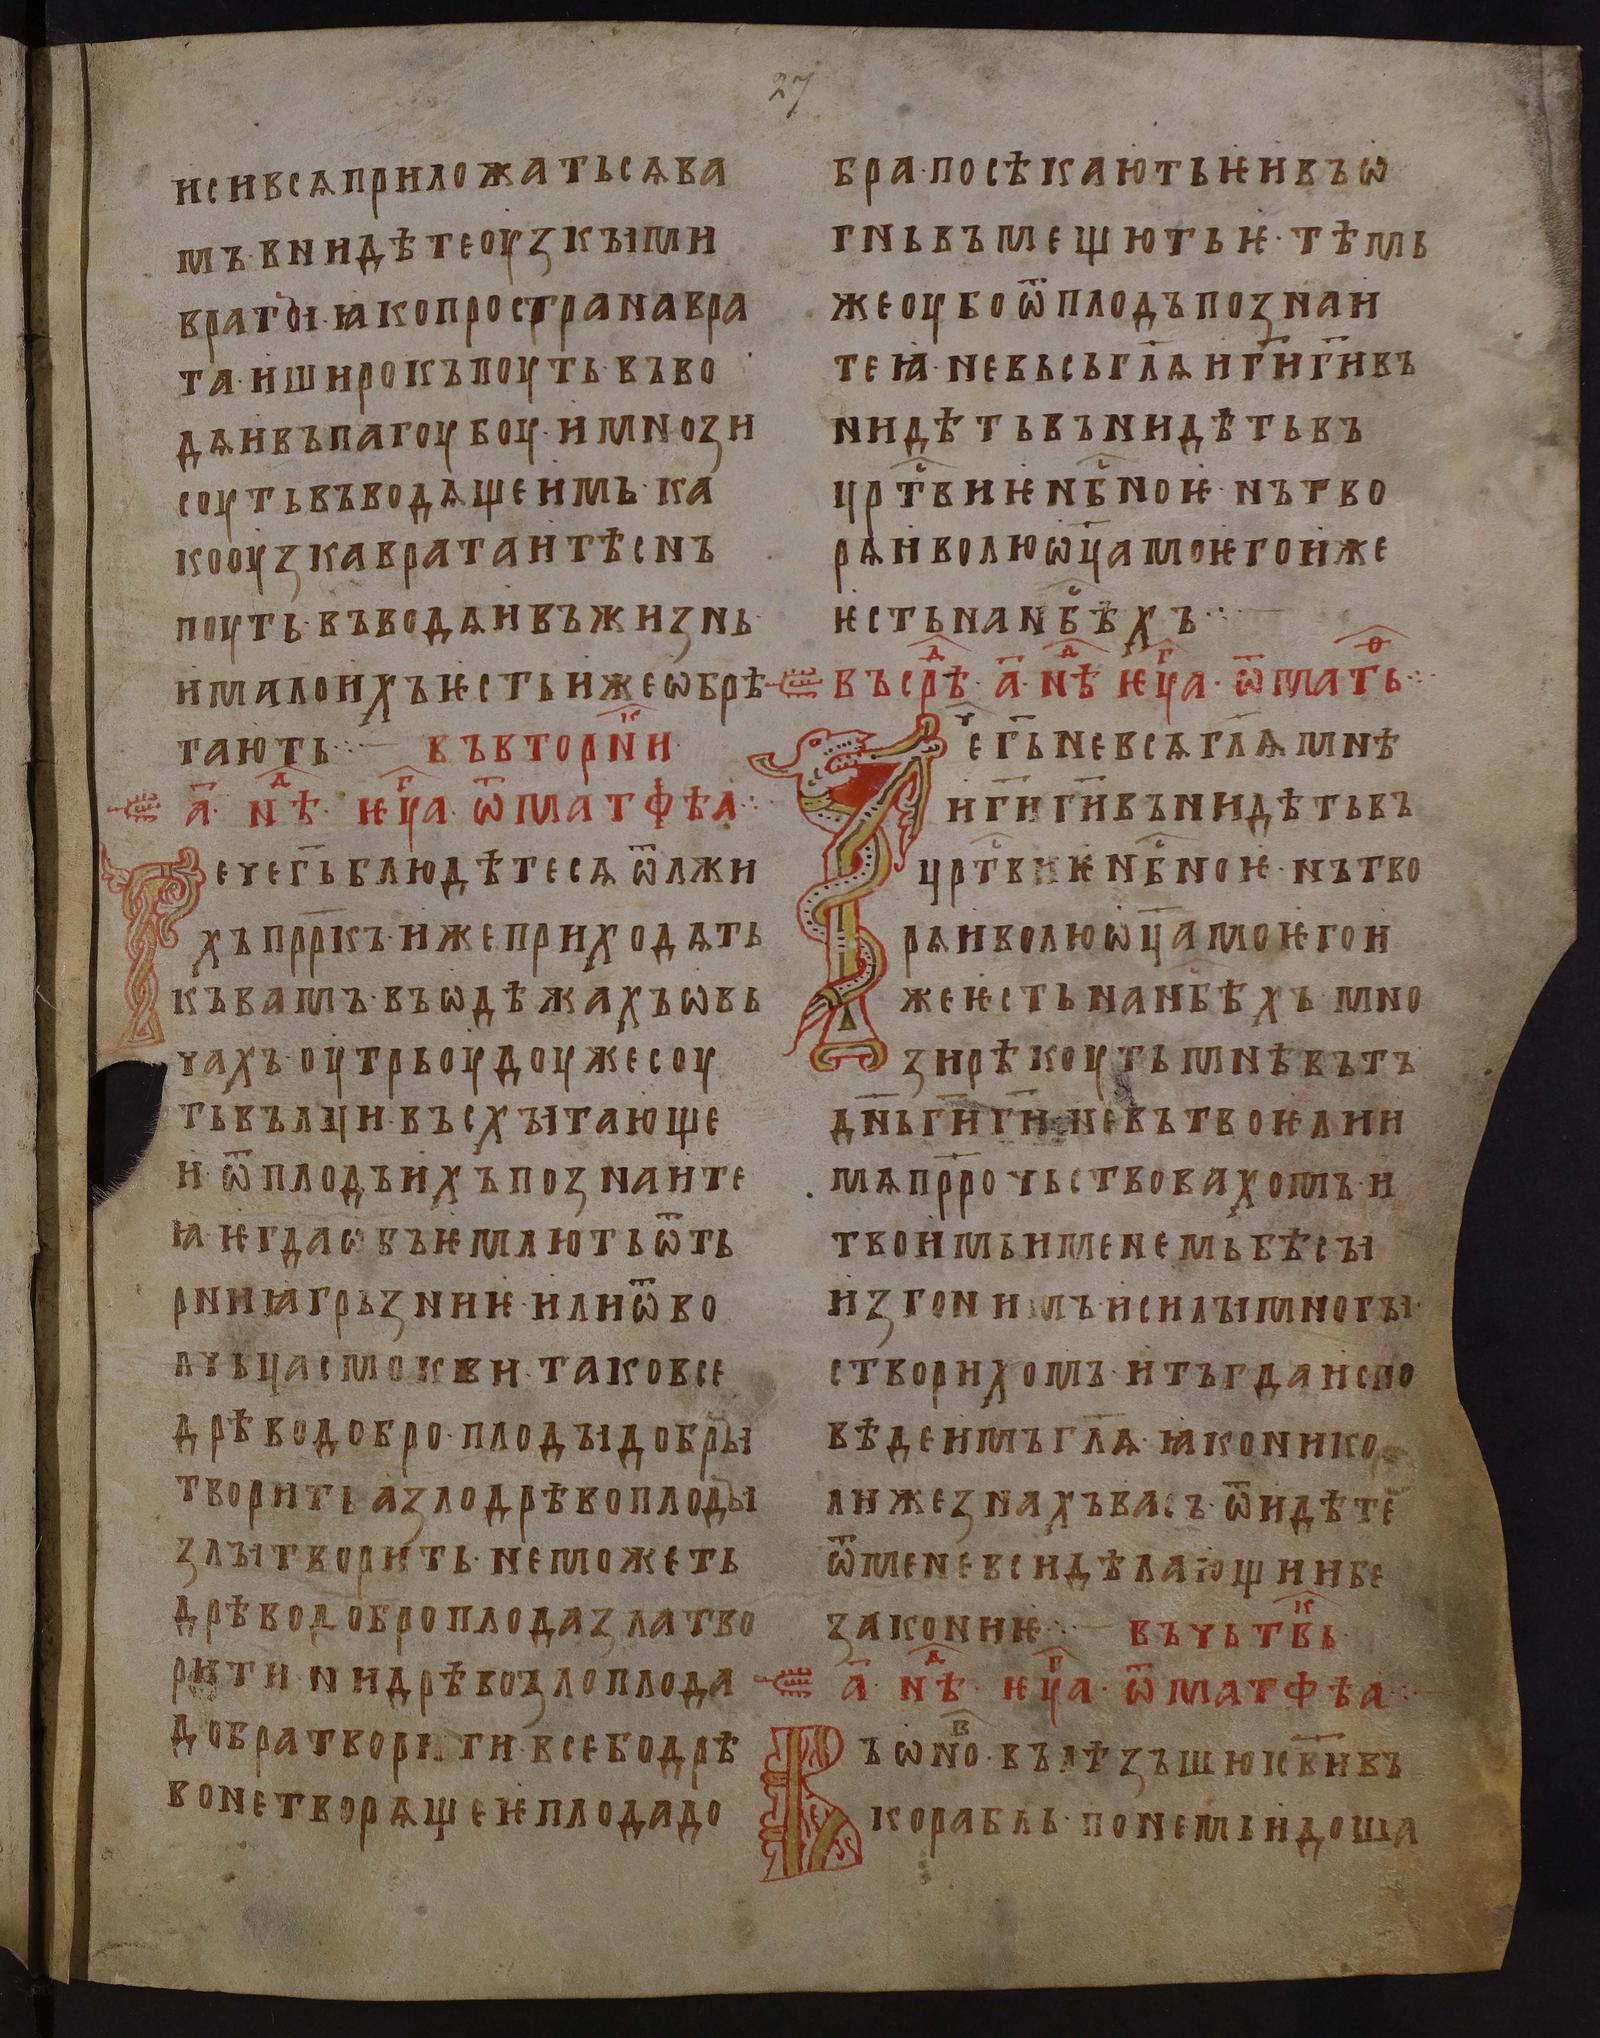 27
исивсѧприложатьсѧва
мъвнидѣтеоузкъıми
вратꙑ·ꙗкопространавра
та·иширокъпоуть·въво
дѧивъпагоубоу·имнози
соутьвъводѧщеимь·ка
кооузкавратаитѣснъ
поуть·въводѧивъжизнь·
ималоихъѥстьижеѡбрѣ
тають·:·—
въвторⷩ҇и
а҃· нⷣѣ· ѥⷢ҇ца· ѿматфѣа·:·
Речег҃ьблюдѣтесѧѿлжи
хъпрр҃къ·ижеприходѧть
къвамъ·въѡдѣжахъѡвь
чахъ·оутрьоудоужесоу
тьвълци·въсхъıтающе
и·ѿплодъихъпознаите
ꙗ·ѥгдаѡбъѥмлютьѿть
рниꙗгрьзниѥ·илиѿво
лчьцасмокви·таковсе
дрѣводобро·плодъıдобръı
творить·азлодрѣвоплодъı
злъıтворить·неможеть
дрѣводоброплодазлатво
рити·нидрѣвозлоплода
добратворити·всебодрѣ
вонетворѧщеѥплодадо
бра·посѣкаютьѥивъѡ
гньвъмещютьѥ·тѣмь
жеоубоѿплодъпознаи
теꙗ·невьсьгл҃ѧиг҃иг҃ивъ
нидѣтьвънидѣтьвъ
црⷭ҇твиѥнбⷭ҇ноѥ·нътво
рѧиволюѡц҃амоѥгоиже
ѥстьнанбⷭ҇ѣхъ·:·—
въсрⷣѣ· а҃· нⷣѣ· ѥⷢ҇ца· ѿматⷴь·:·
Рⷱ҇ег҃ьневсѧгл҃ѧмнѣ
иг҃иг҃ивънидѣтьвъ
црⷭ҇твиѥнбⷭ҇ноѥ·нътво
рѧиволюѡц҃амоѥгои
жеѥстьнанбⷭ҇ѣхъ·мно
зирѣкоутьмнѣвътъ
дн҃ьг҃иг҃и·невътвоѥлии
мѧпрр҃очьствовахомъ·и
твоимьименемьбѣсъı
изгонихомъ·исилъımногъı·
створихомъ·итъгдаиспо
вѣдеимъгл҃ѧ·ꙗконико
лижезнахъвасъ·ѿидѣте
ѿменевсидѣлающиибе
закониѥ·:·—
въчьтвⷦ҇ь·
а҃· нⷣѣ· ѥⷢ҇ца· ѿматфѣа·:·—
Въѡнⷡ҇о·вълѣзъшюіс҃ви·въ
корабль·понемьидоша